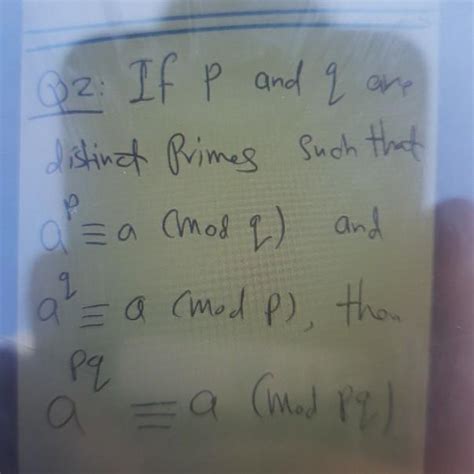 Q2: If p and q are
distinct Primes such that
a^p ≡ a (mod q) and
a^q ≡ a (mod p), then
a^pq ≡ a (mod pq)